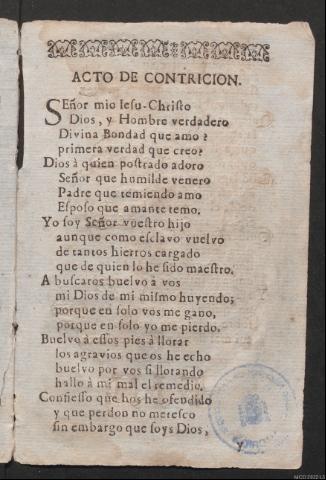 ACTO DE CONTRICION.
SEñor mio Iesu-Christo
Dios, y Hombre verdadero
Divina Bondad que amo?
primera verdad que creo?
Dios à quien postrado adoro
Señor que humilde venero
Padre que temiendo amo
Esposo que amante temo.
Yo soy Señor vuestro hijo
aunque como esclavo vuelvo
de tantos hierros cargado
que de quien lo he sido maestro.
A buscaros buelvo à vos
mi Dios de mi mismo huyendo;
porque en solo vos me gano,
porque en solo yo me pierdo.
Buelvo à essos pies à llorar
los agravios que os he echo
buelvo por vos si llorando
hallo à mi mal el remedio.
Confiesso que hos he ofendido
y que perdon no meresco
sin embargo que soys Dios,
y